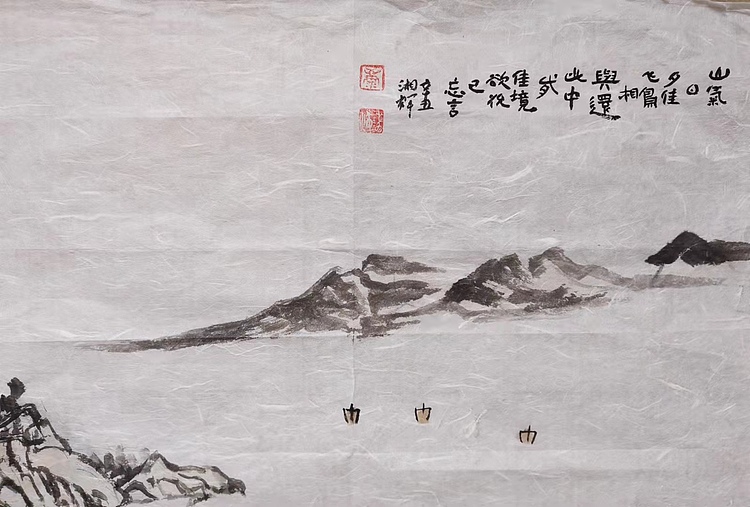 山氣
日
夕佳
飛鳥
相
與還
此中
欲
佳境
欲
已
忘言
辛丑
湘輝